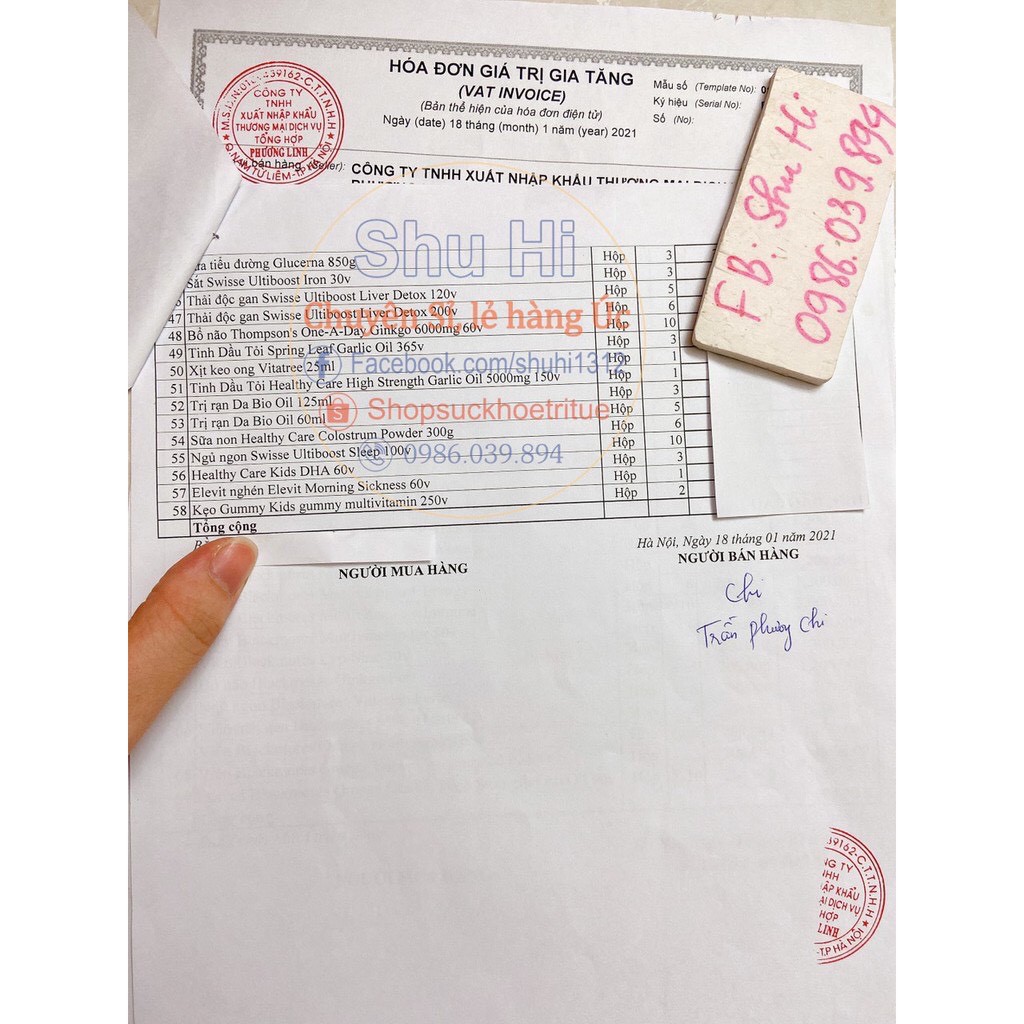 HÓA ĐƠN GIÁ TRỊ GIA TĂNG
(VAT INVOICE)
(Bản thể hiện của hóa đơn điện tử)
Ngày (date) 18 tháng (month) 1 năm (year) 2021
Mẫu số (Template No):
Ký hiệu (Serial No):
Số (No):
CÔNG TY
TNHH
XUẤT NHẬP KHẨU
THƯƠNG MẠI DỊCH VỤ
TỔNG HỢP
PHƯƠNG LINH
Q.NAM TỪ LIÊM-TP HÀ NỘI
bán hàng
CÔNG TY TNHH XUẤT NHẬP KHẨU THƯƠNG MẠI
FB: Shu Hi
0986.039.894
Shu Hi
Chuyên Sỉ, lẻ hàng Úc
Facebook.com/shuhi1312
Shopsuckhoetritue
0986.039.894
tiểu đường Glucerna 850g Hộp 3
Sắt Swisse Ultiboost Iron 30v Hộp 3
Thải độc gan Swisse Ultiboost Liver Detox 120v Hộp 5
47 Thải độc gan Swisse Ultiboost Liver Detox 200v Hộp 6
48 Bổ não Thompson's One-A-Day Ginkgo 6000mg 60v Hộp 10
49 Tinh Dầu Tỏi Spring Leaf Garlic Oil 365v Hộp 3
50 Xịt keo ong Vitatree 25ml Hộp 1
51 Tinh Dầu Tỏi Healthy Care High Strength Garlic Oil 5000mg 150v Hộp 1
52 Trị rạn Da Bio Oil 125ml Hộp 3
53 Trị rạn Da Bio Oil 60ml Hộp 5
54 Sữa non Healthy Care Colostrum Powder 300g Hộp 6
55 Ngủ ngon Swisse Ultiboost Sleep 100v Hộp 10
56 Healthy Care Kids DHA 60v Hộp 3
57 Elevit nghén Elevit Morning Sickness 60v Hộp 1
58 Kẹo Gummy Kids gummy multivitamin 250v Hộp 2
Tổng cộng
Hà Nội, Ngày 18 tháng 01 năm 2021
NGƯỜI MUA HÀNG
NGƯỜI BÁN HÀNG
Chi
Trần Phương Chi
39162-C.T.T.N.H.H
NHẬP KHẨU
DỊCH VỤ
HỢP
LINH
-T.P HÀ NỘI